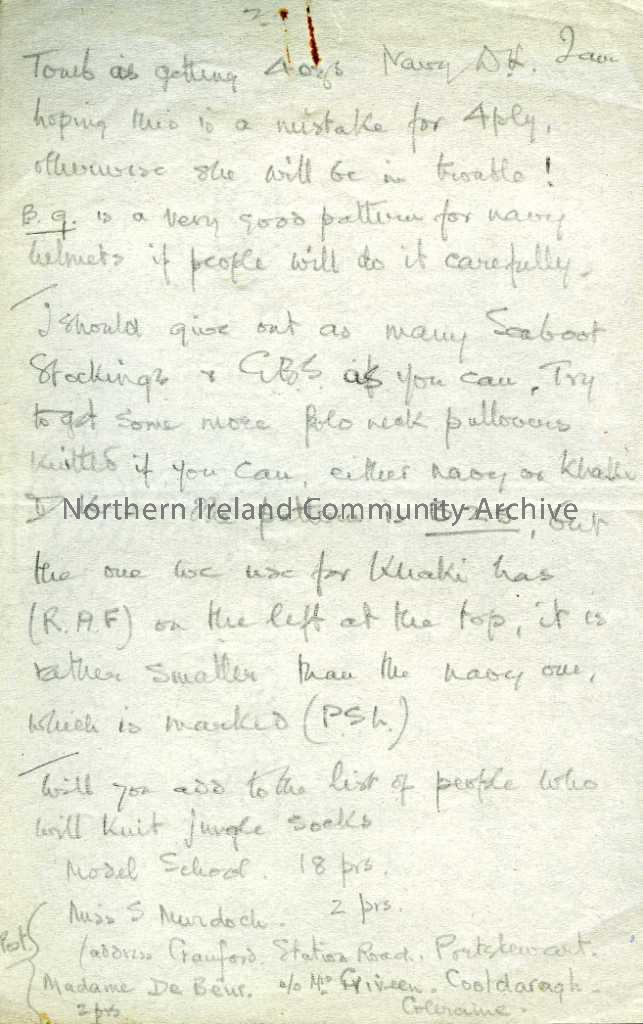 2
Tomb is getting 4 ozs Navy D.K. I am
hoping this is a mistake for 4ply,
otherwise she will be in trouble!
B.9. is a very good pattern for navy
helmets if people will do it carefully.
I should give out as many Seaboot
Stockings & G.B.S. as you can. Try
to get some more Polo neck pullovers
knitted if you can, either navy or Khaki
D.K. The pattern is, but
Northern Ireland Community Archive
the one we use for Khaki has
(R.A.F) on the left at the top, it is
rather smaller than the navy one,
which is marked (P.S.L.)
Will you add to the list of people who
will knit jungle socks
Model School. 18 prs.
Miss S Murdoch. 2 prs.
Post
(address Cranford, Station Road, Portstewart.
Madame De Beur. c/o Mrs Griveen. Cooldaragh.
2 prs Coleraine.